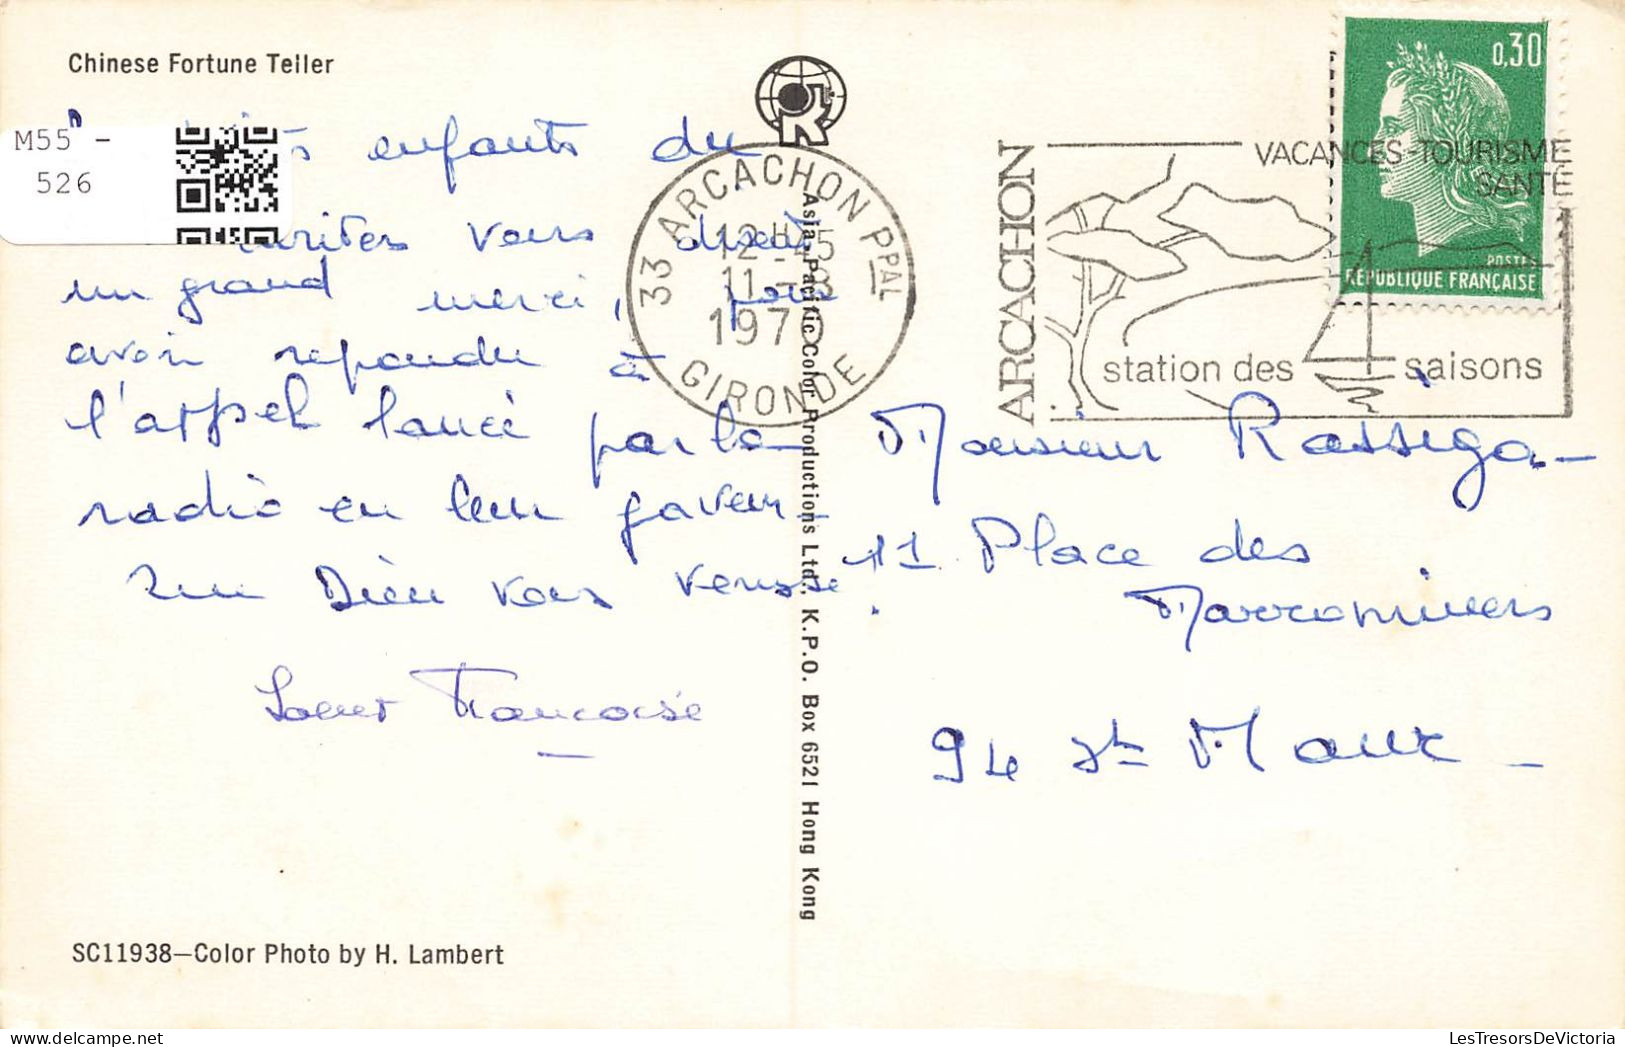 Chinese Fortune Teller
M55 -
526
enfants du
vous disent
un grand merci, pour
avoir repondu à
l'appel lancé par la
radio en leur faveur.
Que Dieu vous
Soeur Francoise
SC11938—Color Photo by H. Lambert
Asia-Pacific Color Productions Ltd., K.P.O. Box 6521 Hong Kong
33 ARCACHON PPAL
12H45
11-8
1970
GIRONDE
ARCACHON
VACANCES-TOURISME
SANTE
station des saisons
0,30
POSTES
REPUBLIQUE FRANÇAISE
Monsieur Rassiga-
11 Place des
Marronniers
94 St Maur -
LesTresorsDeVictoria
www.delcampe.net